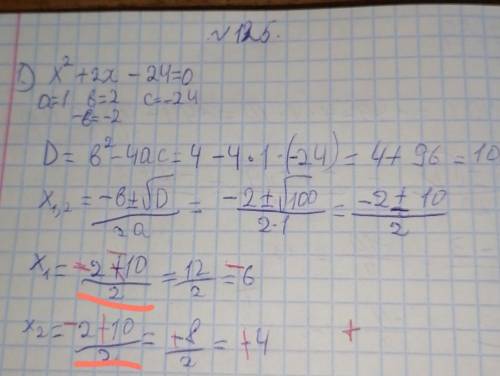 №125.
1) x² + 2x - 24 = 0
a=1 b=2 c=-24
-b=-2
D = b² - 4ac = 4 - 4·1·(-24) = 4 + 96 = 10
x₁,₂ = (-b ± √D)/2a = (-2 ± √100)/2·1 = (-2 ± 10)/2
x₁ = (-2 + 10)/2 = 12/2 = -6
x₂ = (-2 + 10)/2 = +8/2 = +4 +